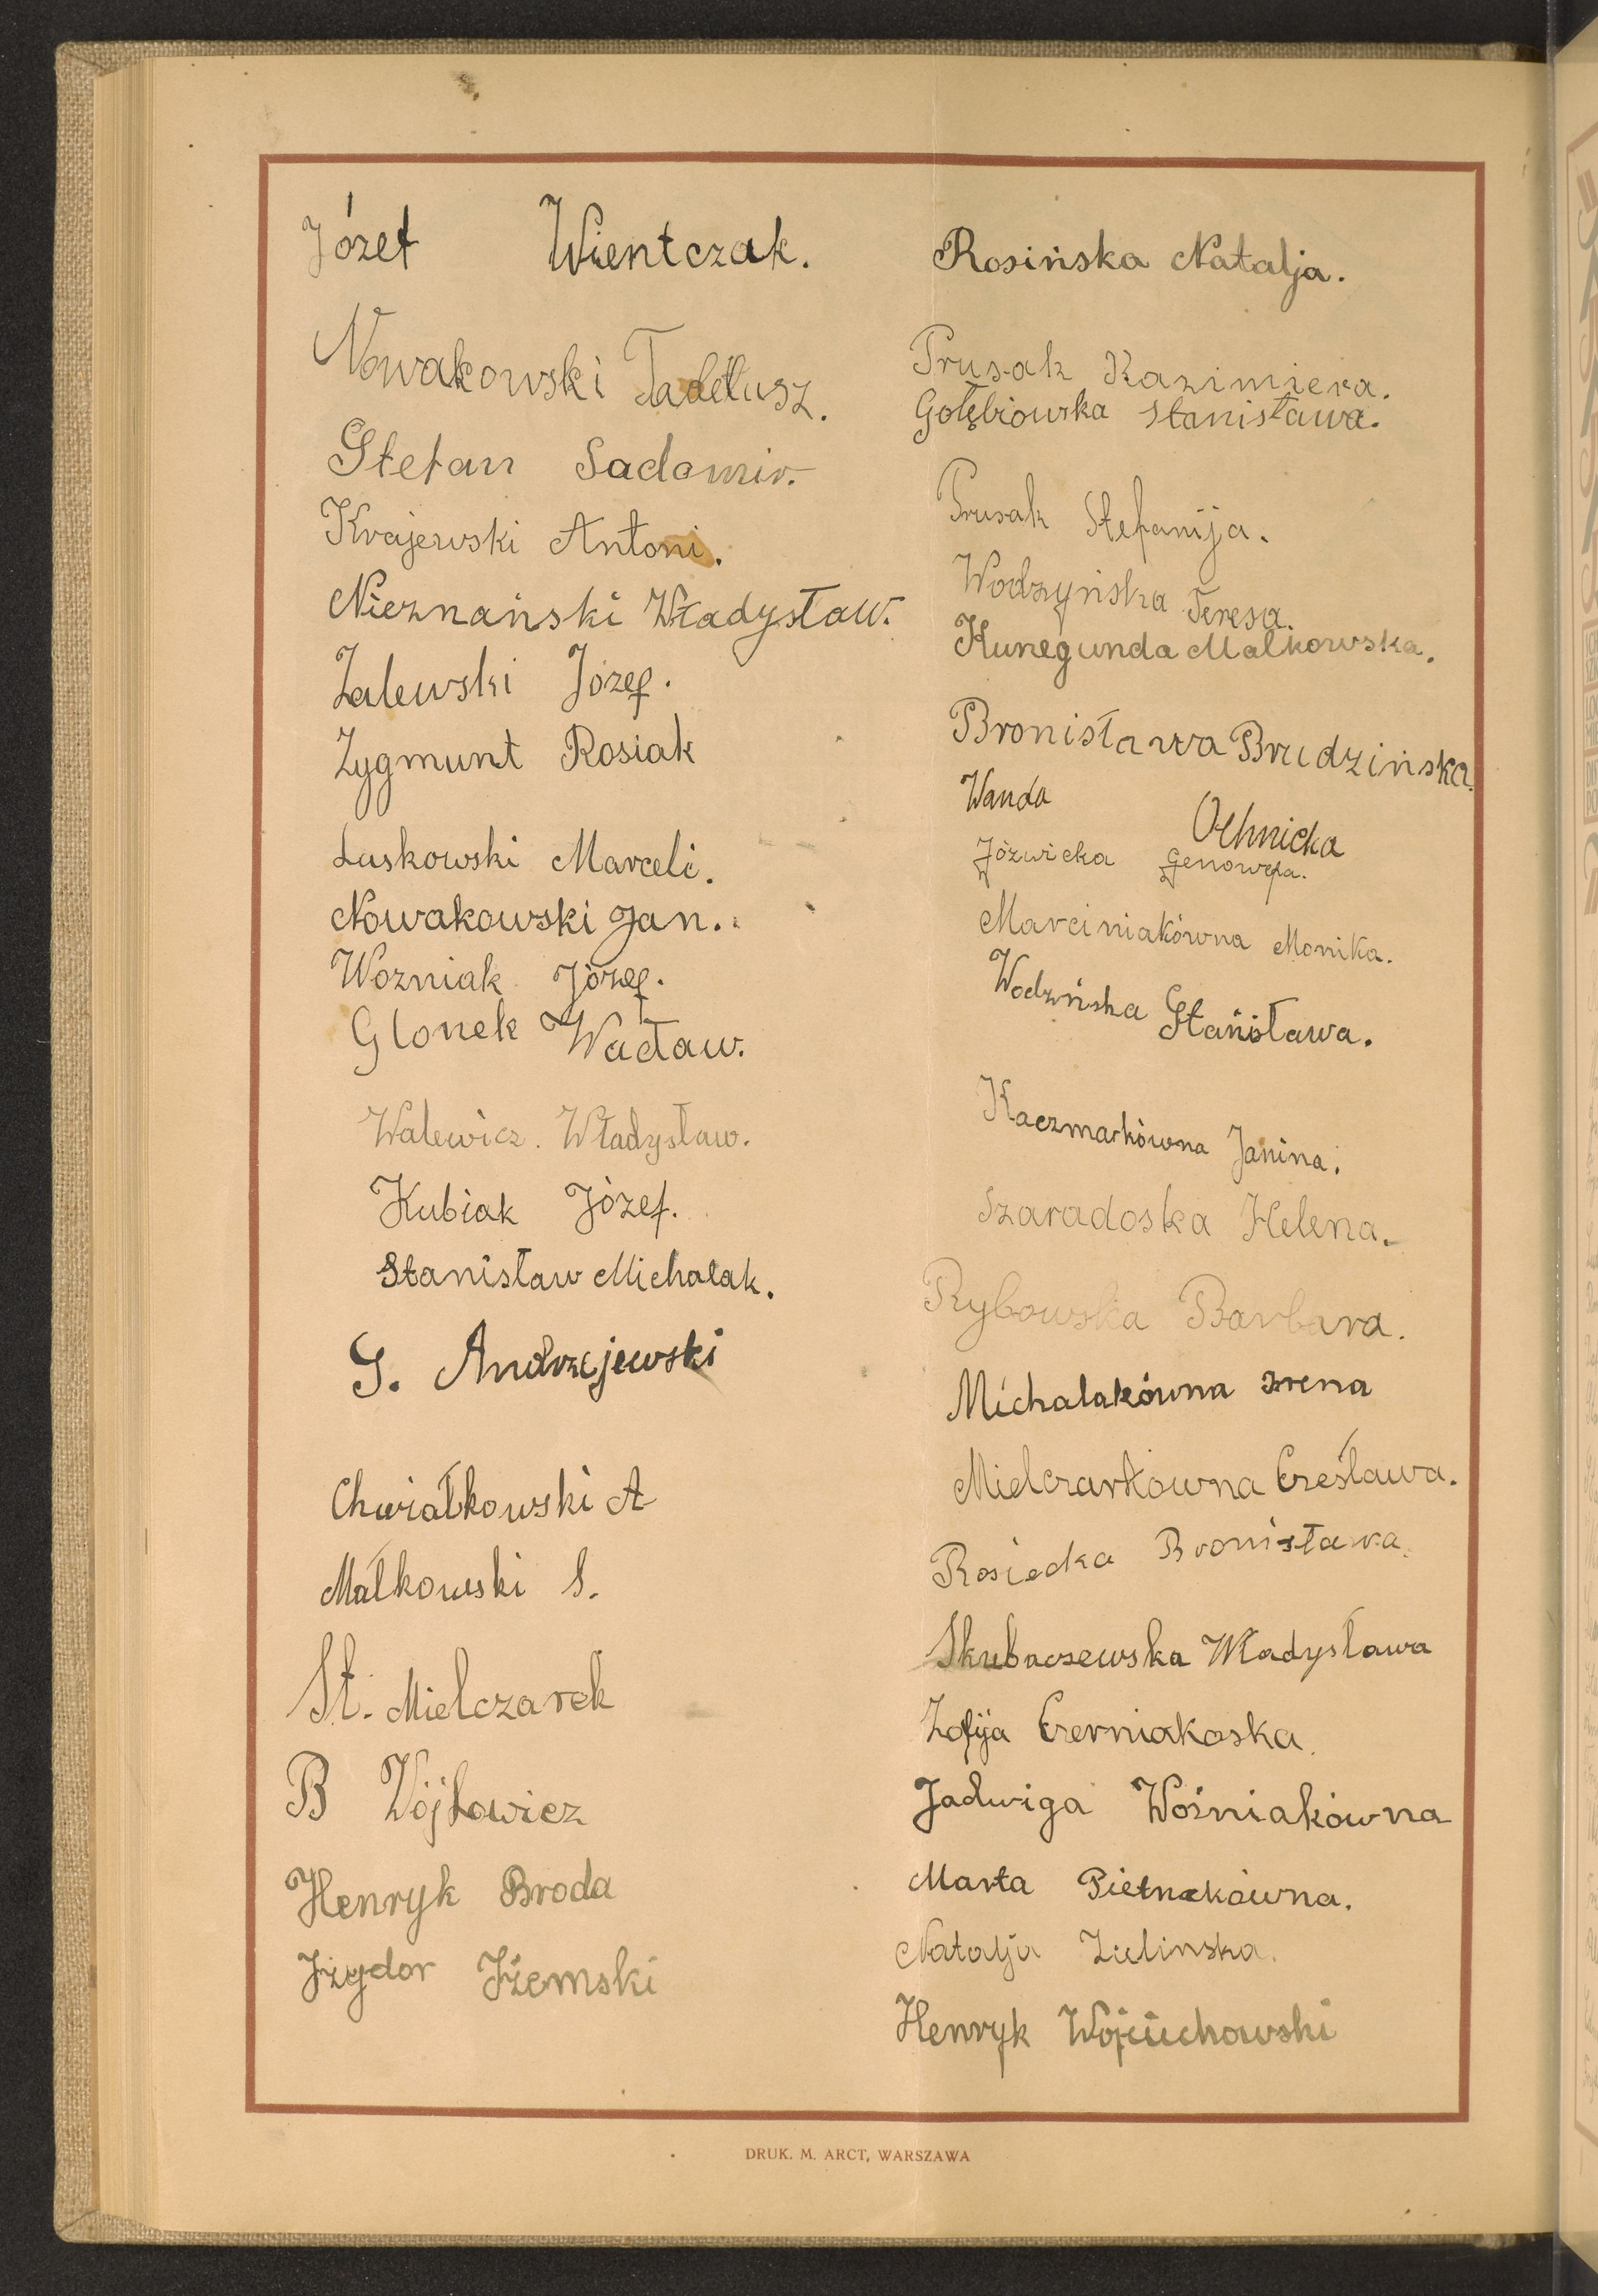 Józef Wientczak.
Nowakowski Tadeusz.
Stefan Sadomir.
Krajewski Antoni.
Nieznański Władysław.
Zalewski Józef.
Zygmunt Rosiak
Laskowski Marceli.
Nowakowski Jan.
Wozniak Józef.
Glonek Wacław.
Walewicz. Władysław.
Kubiak Józef.
Stanisław Michalak.
G. Andrzejewski
Chwiałkowski A
Małkowski S.
St. Mielczarek
B Wójtowicz
Henryk Broda
Izydor Iżemski
Rosińska Natalja.
Prusak Kazimiera.
Gołębiowska Stanisława.
Prusak Stefanija.
Wodzyńska Teresa.
Kunegunda Malkowska.
Bronisława Brudzińska.
Wanda Ochnicka
Józwicka Genowefa.
Marciniakówna Monika.
Wodzńska Stanisława.
Kaczmarkówna Janina.
Szaradoska Helena.
Rybowska Barbara.
Michalakówna Irena
Mielczarkówna Czesława.
Rosiecka Bronisława.
Skubaczewska Władysława
Zofija Czerniakoska
Jadwiga Woźniakówna
Marta Pietrzakówna.
Natalja Zielinska.
Henryk Wojciechowski
DRUK. M. ARCT, WARSZAWA